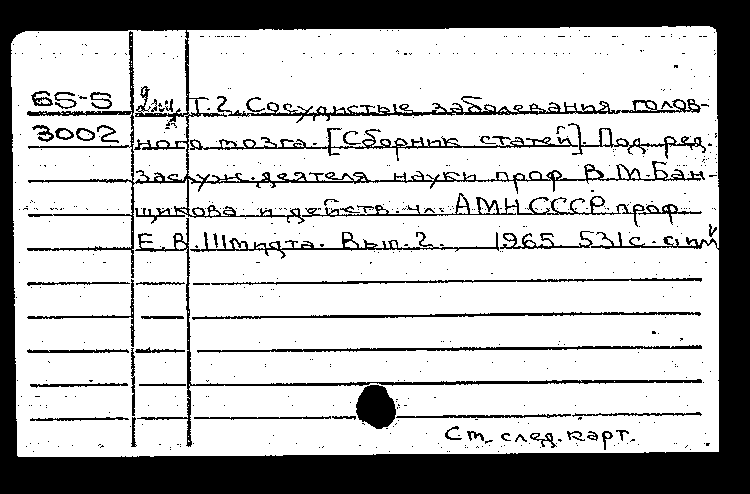 65-5 2 экз. Т.2. Сосудистые заболевания голов-
3002 ного мозга. [Сборник статей]. Под ред.
заслуж. деятеля науки проф. В.М. Бан-
щикова и действ. чл. АМН СССР проф.
Е.В. Шмидта. Вып. 2. 1965 531 с. с ил
См. след. карт.